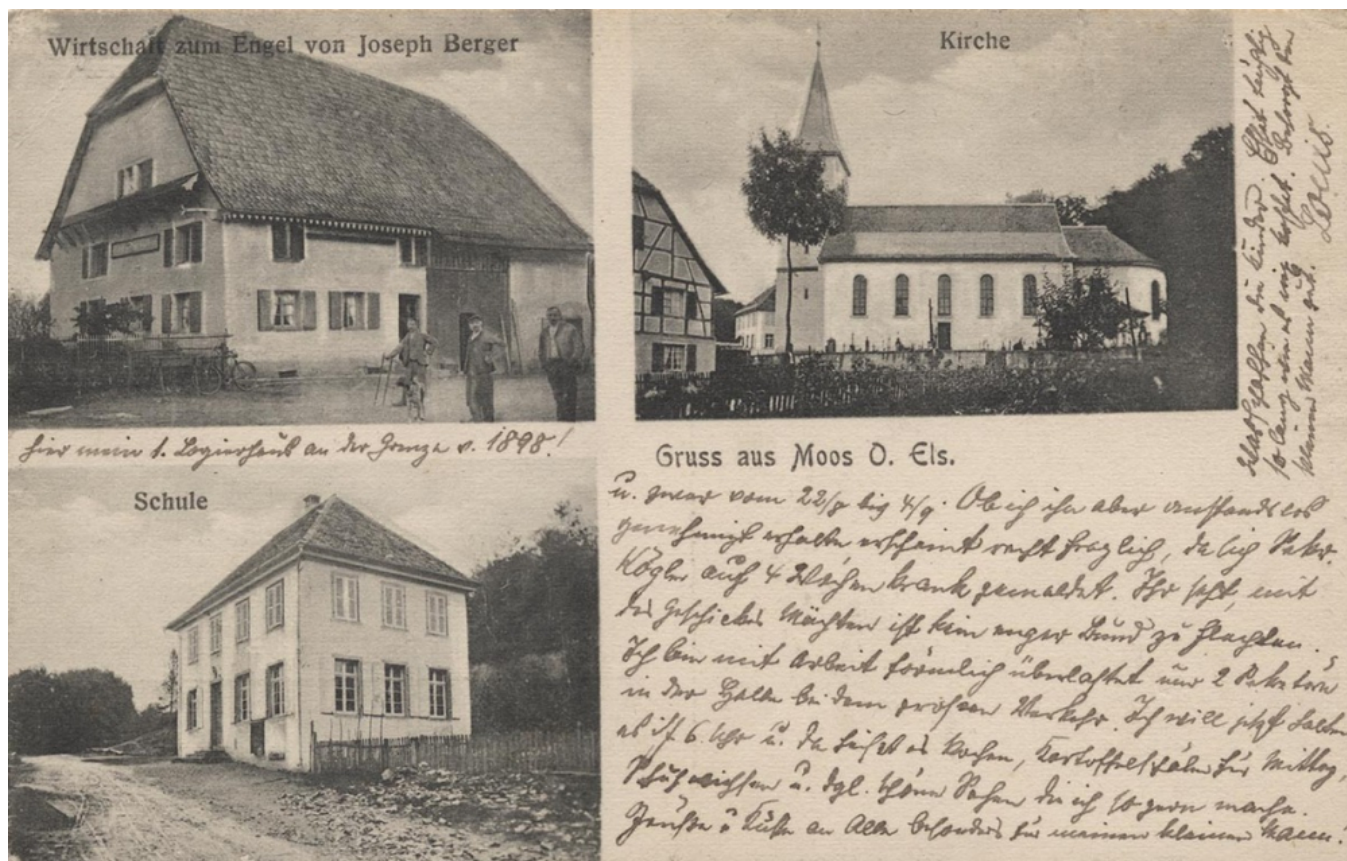 Wirtschaft zum Engel von Joseph Berger
Kirche
hier mein 1. Logierhaus an der Grenze v. 1898!
Schule
Gruss aus Moos O. Els.
u. zwar vom 22/8 bis 4/9. Ob ich ihn aber anstandslos
genehmigt erhalte erscheint recht fraglich, da sich Sekr.
Kögler auf 4 Wochen krank gemeldet. Ihr seht, mit
des Geschickes Mächten ist kein enger Bund zu flechten.
Ich bin mit Arbeit förmlich überlastet nur 2 Sekretäre
in der Halle bei dem grossen Verkehr. Ich will jetzt
es ist 6 Uhr u. da heißt es kochen, Kartoffelschälen für Mittag,
Schuhwichsen u. dgl. schöne Sachen die ich so gern mache.
Grüsse u Küsse an Alle besonders für meinen kleinen Mann!
Was machen die Kinder.
so lang wie es ihm
kleinen Mann gut. Louis.